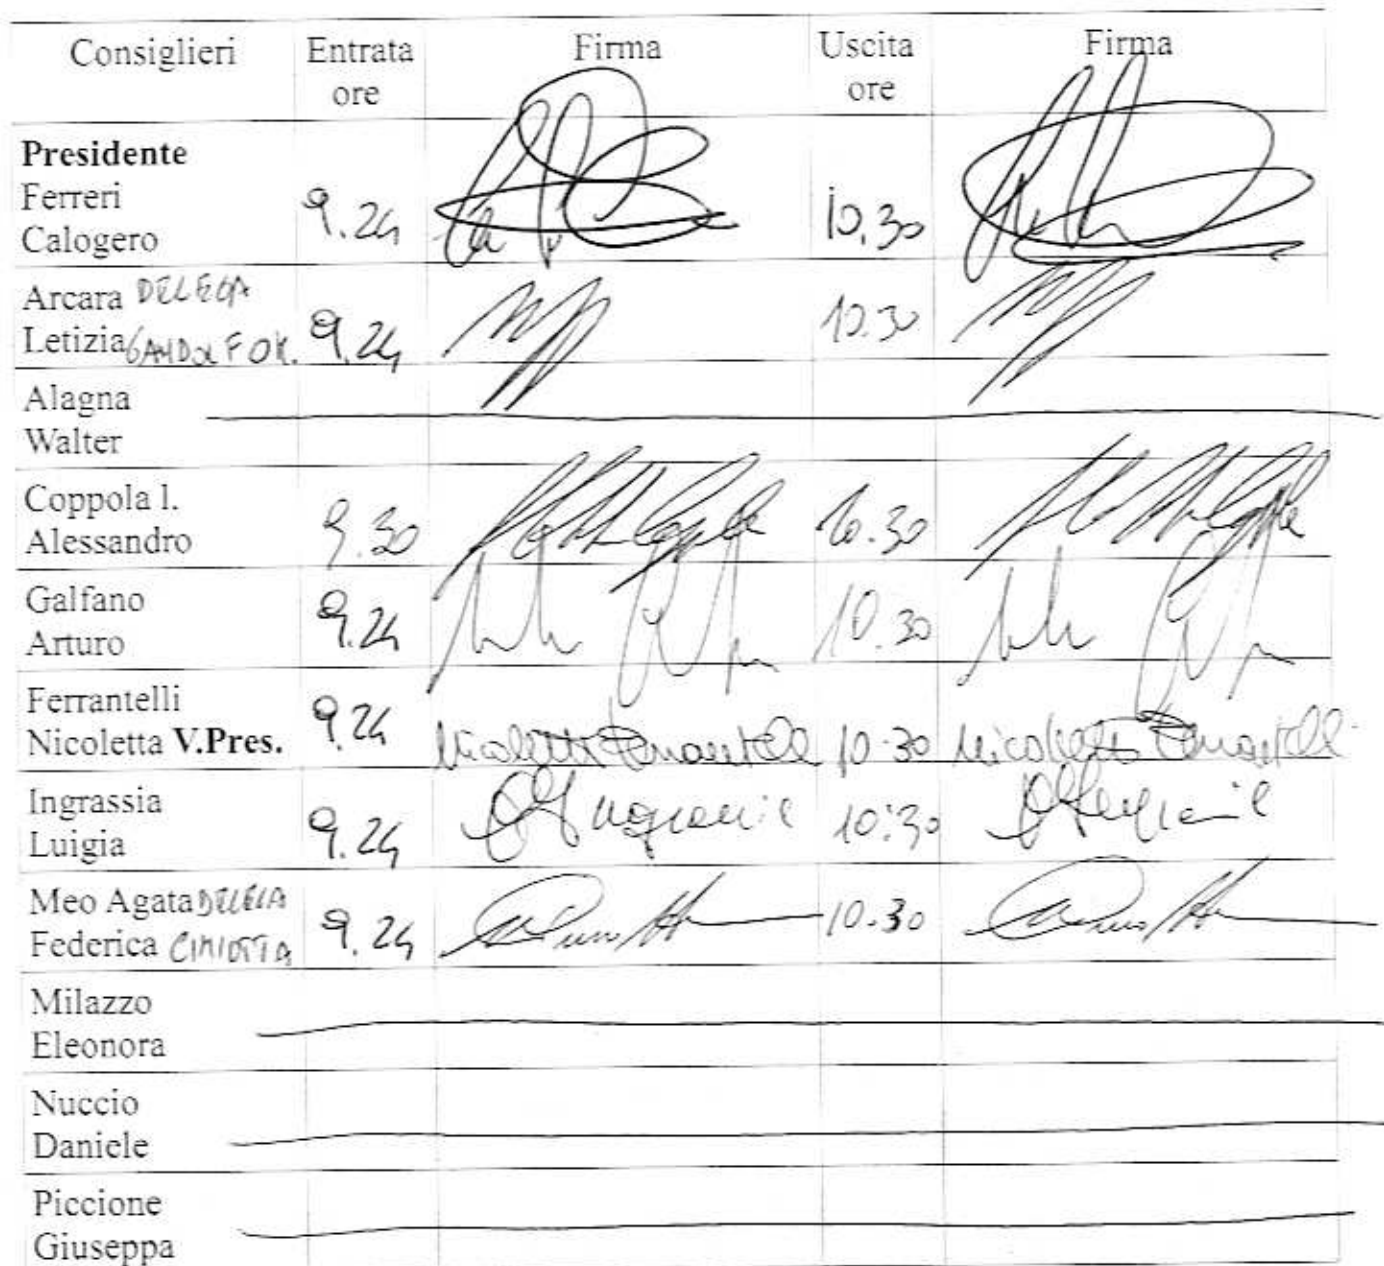 Consiglieri Entrata ore Firma Uscita ore Firma
Presidente
Ferreri
Calogero 9.24 10.30
Arcara DELEGA
Letizia 9.24 10.30
Alagna
Walter
Coppola l.
Alessandro 9.30 10.30
Galfano
Arturo 9.24 10.30
Ferrantelli
Nicoletta V.Pres. 9.24 Nicoletta Ferrantelli 10.30 Nicoletta Ferrantelli
Ingrassia
Luigia 9.24 10:30
Meo Agata DELEGA
Federica CIMIOTTA 9.24 10.30
Milazzo
Eleonora
Nuccio
Daniele
Piccione
Giuseppa